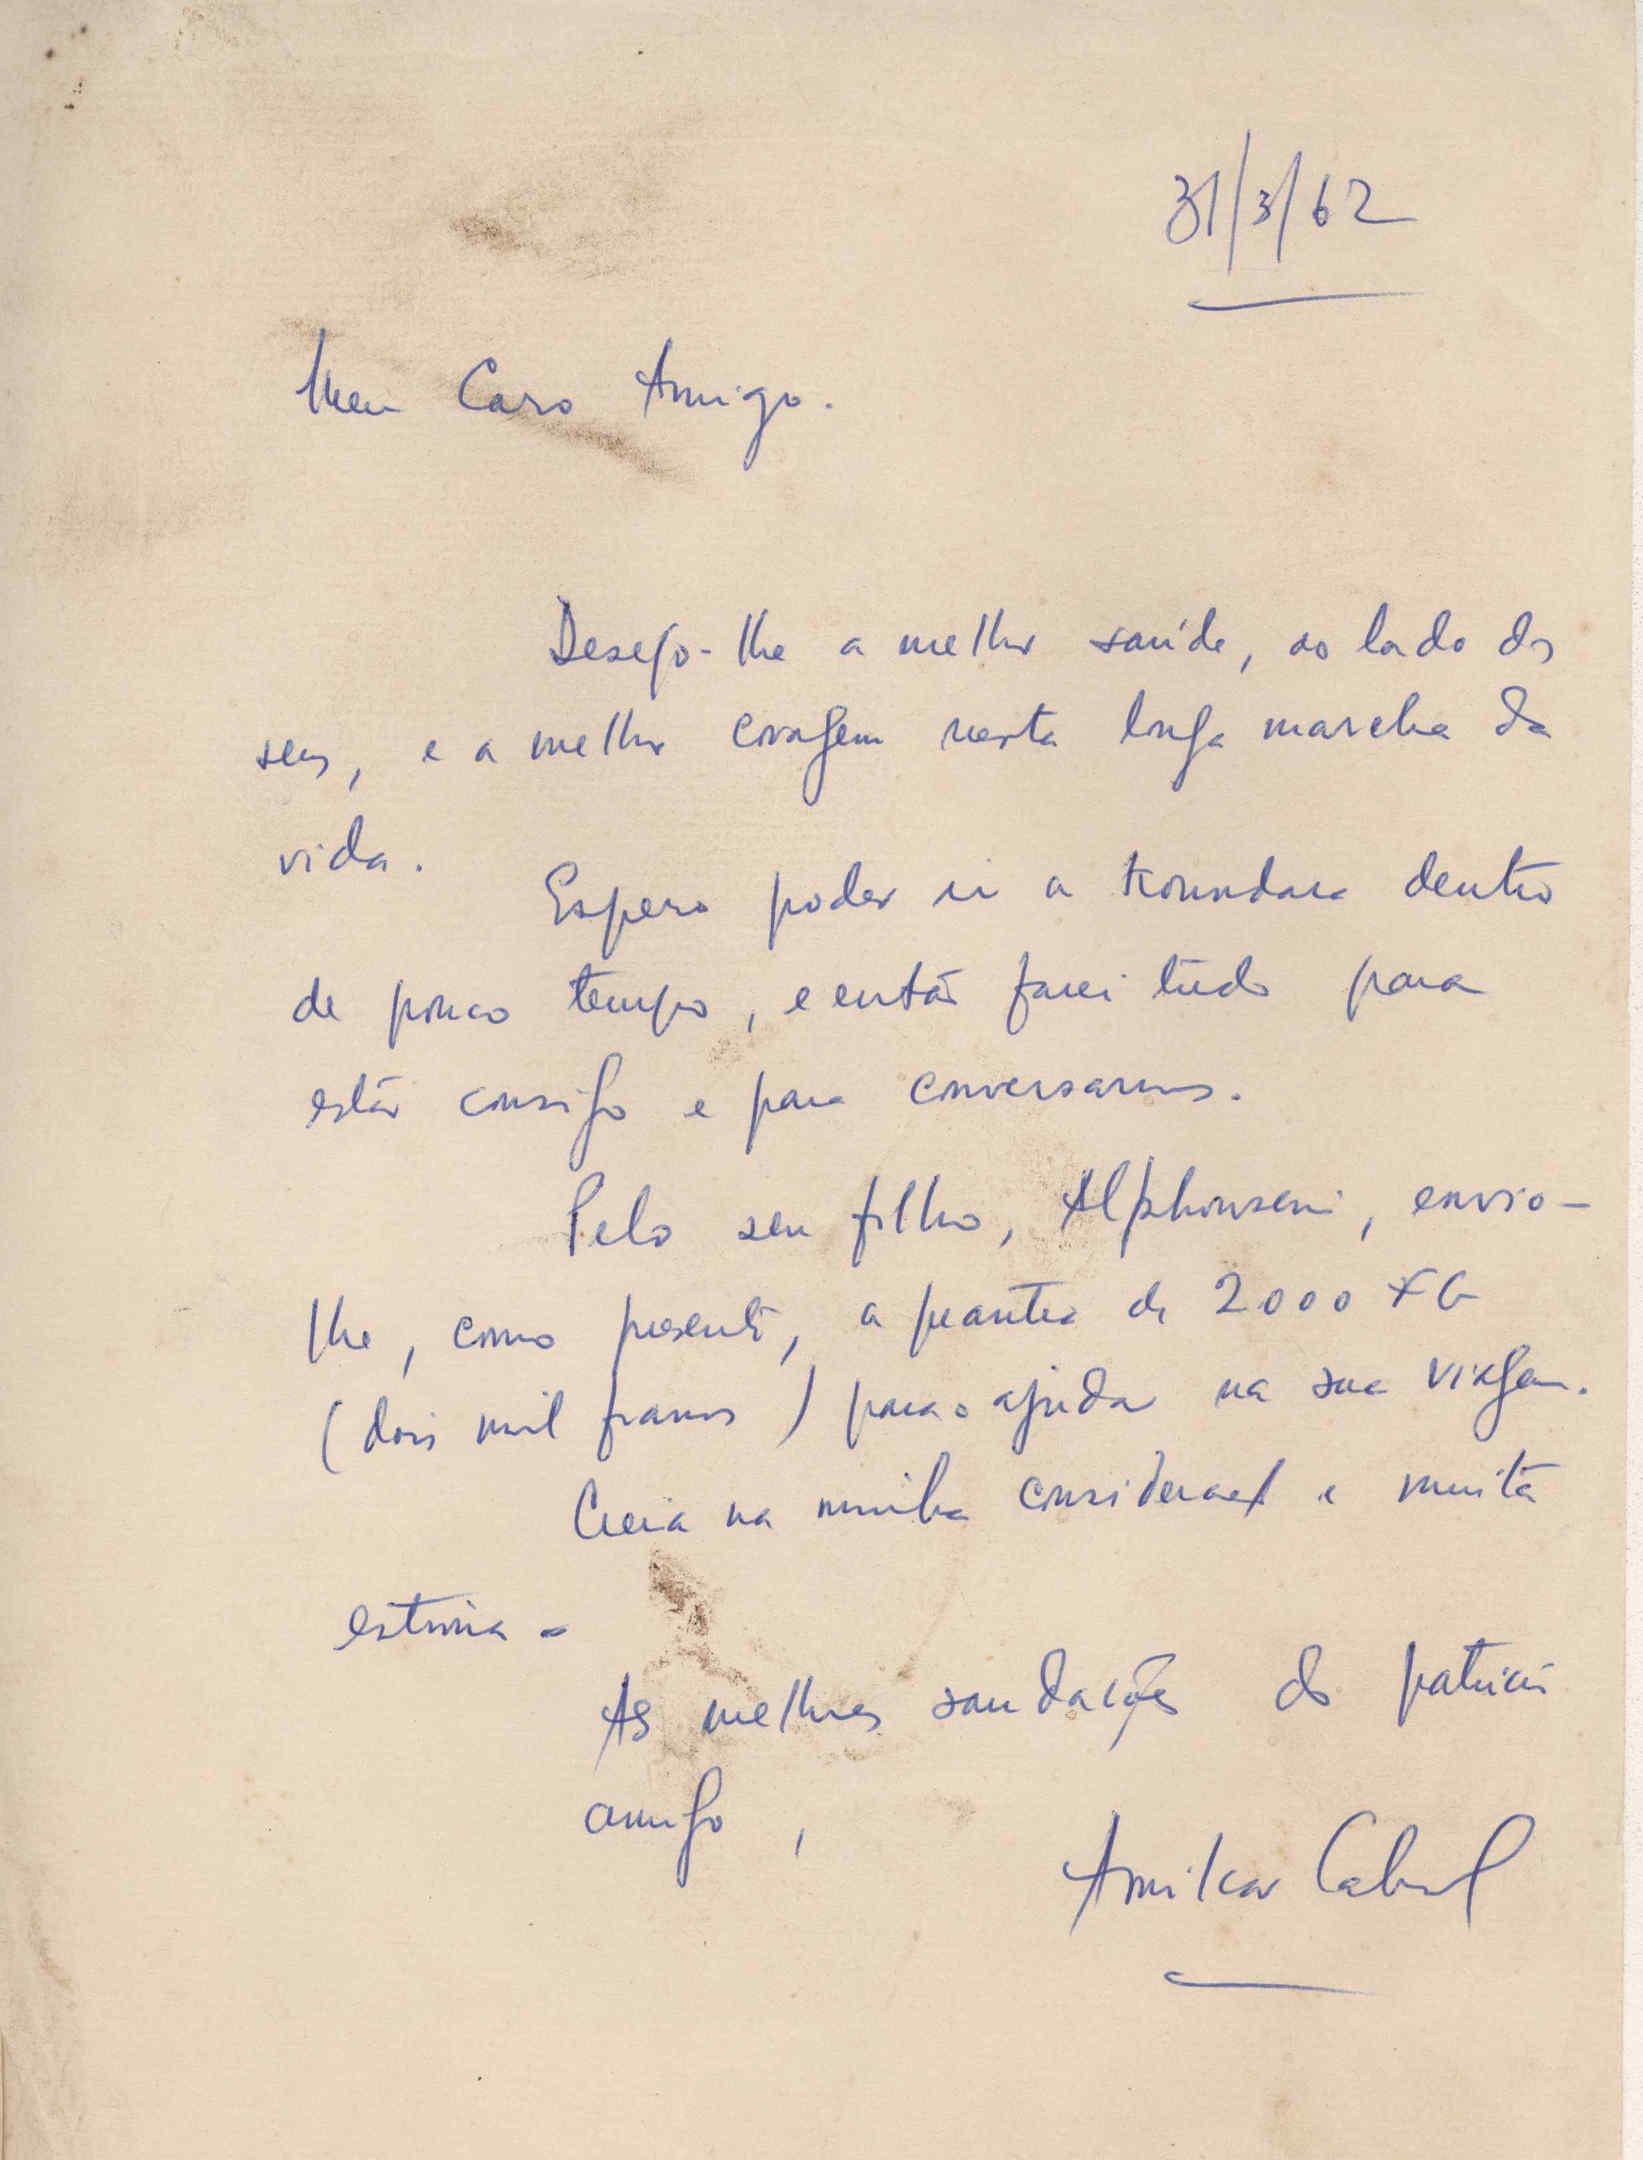 31/3/62
Meu Caro Amigo.
Desejo-lhe a melhor saúde, ao lado dos
seus, e a melhor coragem nesta longa marcha da
vida.
Espero poder ir a Koundara dentro
de pouco tempo, e então farei tudo para
estar consigo e para conversarmos.
Pelo seu filho, Alphonseni, envio-
lhe, como presente, a quantia de 2000 FG
(dois mil francos) para o ajudar na sua viagem.
Creia na minha consideração e muita
estima.
As melhores saudações do patrício
amigo,
Amilcar Cabral